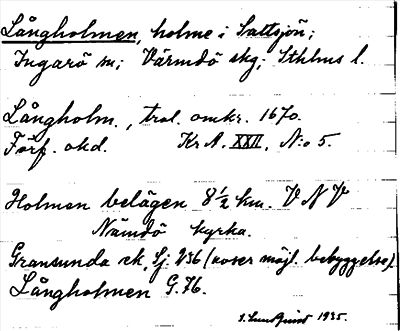 Långholmen, holme i Saltsjön;
Ingarö sn; Värmdö skg; Sthlms l.
Långholm., trol. omkr. 1670.
Förf. okd. Kr A. XXII. N:o 5.
Holmen belägen 8½ km. V N V
Nämdö kyrka.
Gransunda ek. Sj. 236 (avser möjl. bebyggelse).
Långholmen G.76.
S. Lundquist 1935.